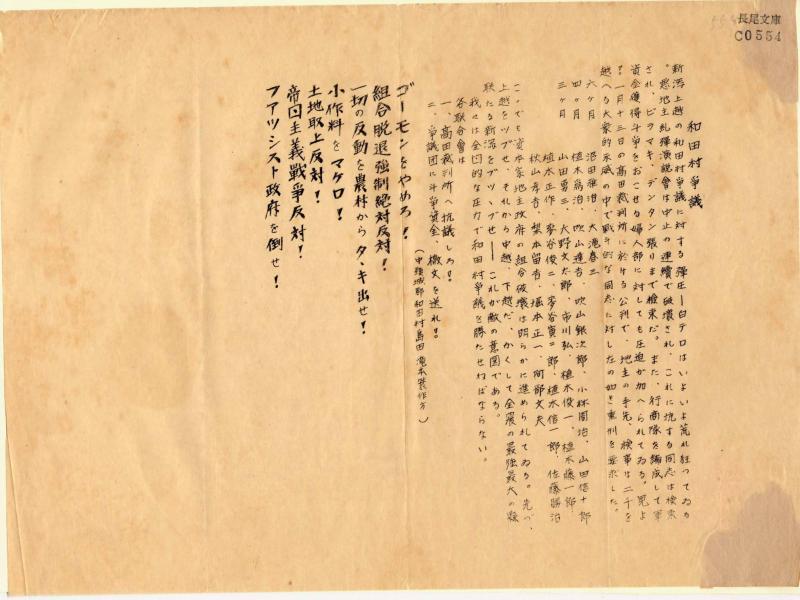 長尾文庫
C0554
和田村争議
新潟上越の和田村争議に対する弾圧―白テロはいよいよ荒れ狂つてゐる
。悪地主糺弾演説会は中止の連続で破壊され、これに抗する同志は検束
され、ビラマキ、デンタン張りまで検束だ。また、行商隊を編成して軍
資金獲得斗争をおこせる婦人部に対しても圧迫が加へられてゐる。見よ
！一月十三日の高田裁判所に於ける公判で、地主の手先、検事は二千を
越へる大衆的示威の中で戦斗的な同志に対し左の如き重刑を要求した。
六ヶ月 沼田雅治、大滝春三
四ヶ月 植木嘉治、吹山進吉、吹山銀次郎、小林周治、山田信十郎
三ヶ月 山田勇三、大野文太郎、市川弘、植木俊一、植木藤一郎、
植木正作、麥谷俊二、麥谷寅二郎、植木信一郎、佐藤勝治
秋山孝吉、梨本留吉、滝本正一、阿部文夫
こゝでも資本家地主政府の組合破壊は明らかに進められてゐる。先づ、
上越をツブせ、それから中越、下越だ、かくして全農の最強最大の聯
聯たる新潟をブツつぶせ――これが敵の意図である。
我々は全国的な圧力で和田村争議を勝たせねばならない。
各聯合会は
一、高田裁判所へ抗議しろ！
二、争議団に斗争資金、檄文を送れ！。
（中頸城郡和田村島田 滝本製作方）
ゴーモンをやめろ！
組合脱退強制絶対反対！
一切の反動を農村からタヽキ出せ！
小作料をマケロ！
土地取上反対！
帝国主義戦争反対！
ファッシスト政府を倒せ！